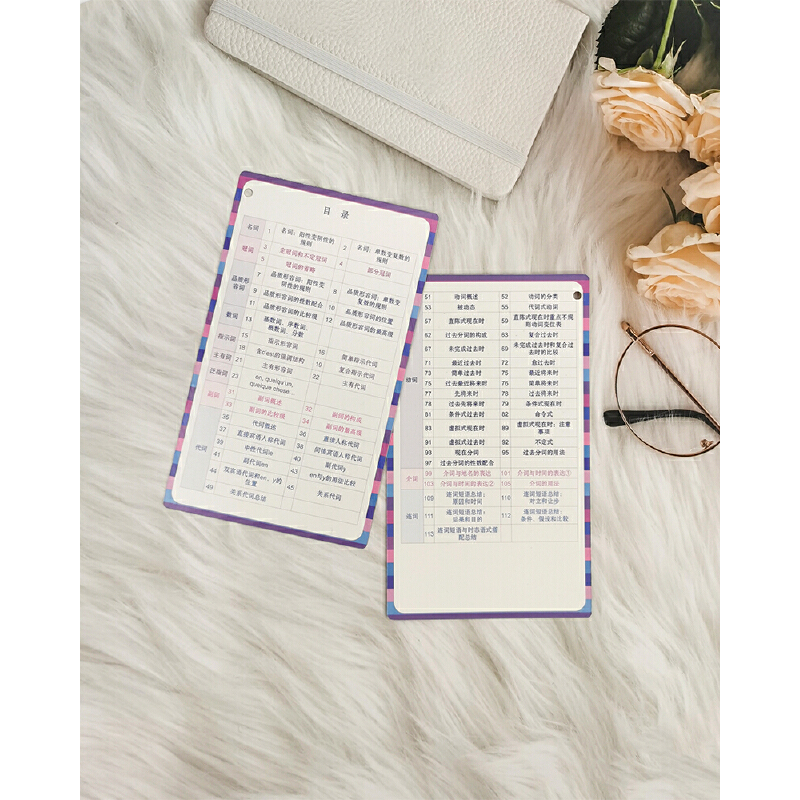 目 录
名词 1 名词：阳性变阴性的规则 2 名词：单数变复数的规则
冠词 3 定冠词和不定冠词 4 部分冠词
5 冠词的省略
品质形容词 7 品质形容词：阳性变阴性的规则 8 品质形容词：单数变复数的规则
9 品质形容词的性数配合 10 品质形容词的位置
11 品质形容词的比较级 12 品质形容词的最高级
数词 13 基数词、序数词、概数词、分数
指示词 15 指示形容词 16 简单指示代词
18 含c'est的强调结构 20 复合指示代词
主有词 21 主有形容词 22 主有代词
泛指词 23 en, quelqu'un, quelque chose
副词 31 副词概述 32 副词的构成
33 副词的比较级 34 副词的最高级
代词 35 代词概述 36 重读人称代词
37 直接宾语人称代词 38 间接宾语人称代词
39 中性代词le 40 副代词y
41 副代词en 43 en与y的用法比较
44 双宾语代词和en、y的位置 45 关系代词
49 关系代词总结
动词 51 动词概述 52 动词的分类
53 被动态 55 代词式动词
57 直陈式现在时 59 直陈式现在时重点不规则动词变位表
62 过去分词的构成 63 复合过去时
67 未完成过去时 69 未完成过去时和复合过去时的比较
71 最近过去时 72 愈过去时
73 简单过去时 75 最近将来时
75 过去最近将来时 75 简单将来时
77 先将来时 78 过去将来时
78 过去先将来时 79 条件式现在时
81 条件式过去时 82 命令式
83 虚拟式现在时 89 虚拟式现在时：注意事项
91 虚拟式过去时 92 不定式
93 现在分词 95 过去分词的用法
97 过去分词的性数配合
介词 99 介词与地名的表达 101 介词与时间的表达①
103 介词与时间的表达② 105 介词的用法
连词 109 连词短语总结：原因和时间 110 连词短语总结：对立和让步
111 连词短语总结：结果和目的 112 连词短语总结：条件、假设和比较
113 连词短语与时态语式搭配总结